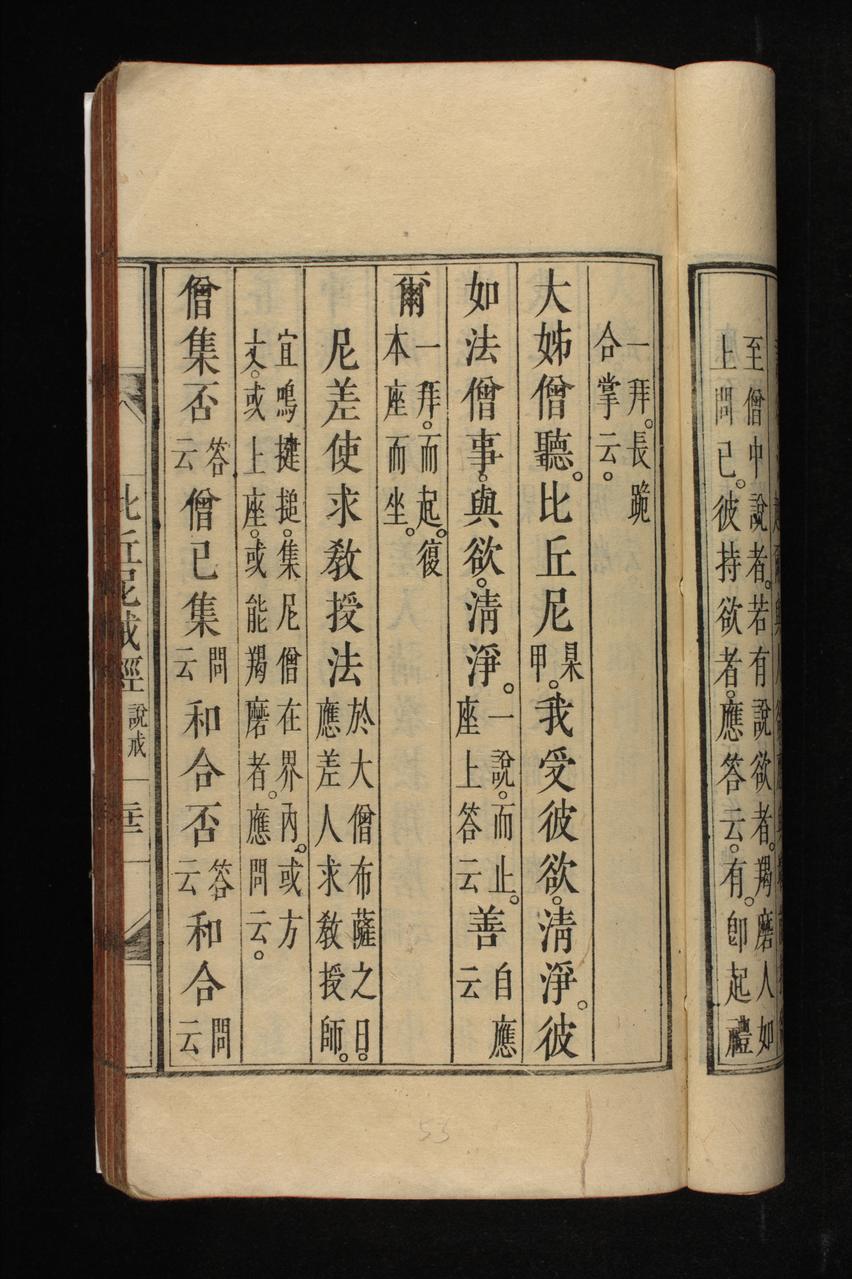 至僧中說者。若有說欲者。羯磨人如
上問已。彼持欲者。應答云。有。卽起禮
一拜。長跪
合掌云。
大姊僧聽。比丘尼
某
甲。我受彼欲。清淨。彼
如法僧事。與欲。清淨。
一說。而止。
座上答云
善
自應
云
爾
一拜。而起。復
本座而坐。
尼差使求教授法
於大僧布薩之日。
應差人求教授師。
宜鳴揵搥。集尼僧在界內。或方
丈。或上座。或能羯磨者。應問云。
僧集否
答
云
僧已集
問
云
和合否
答
云
和合
問
云
比丘尼戒經
說戒